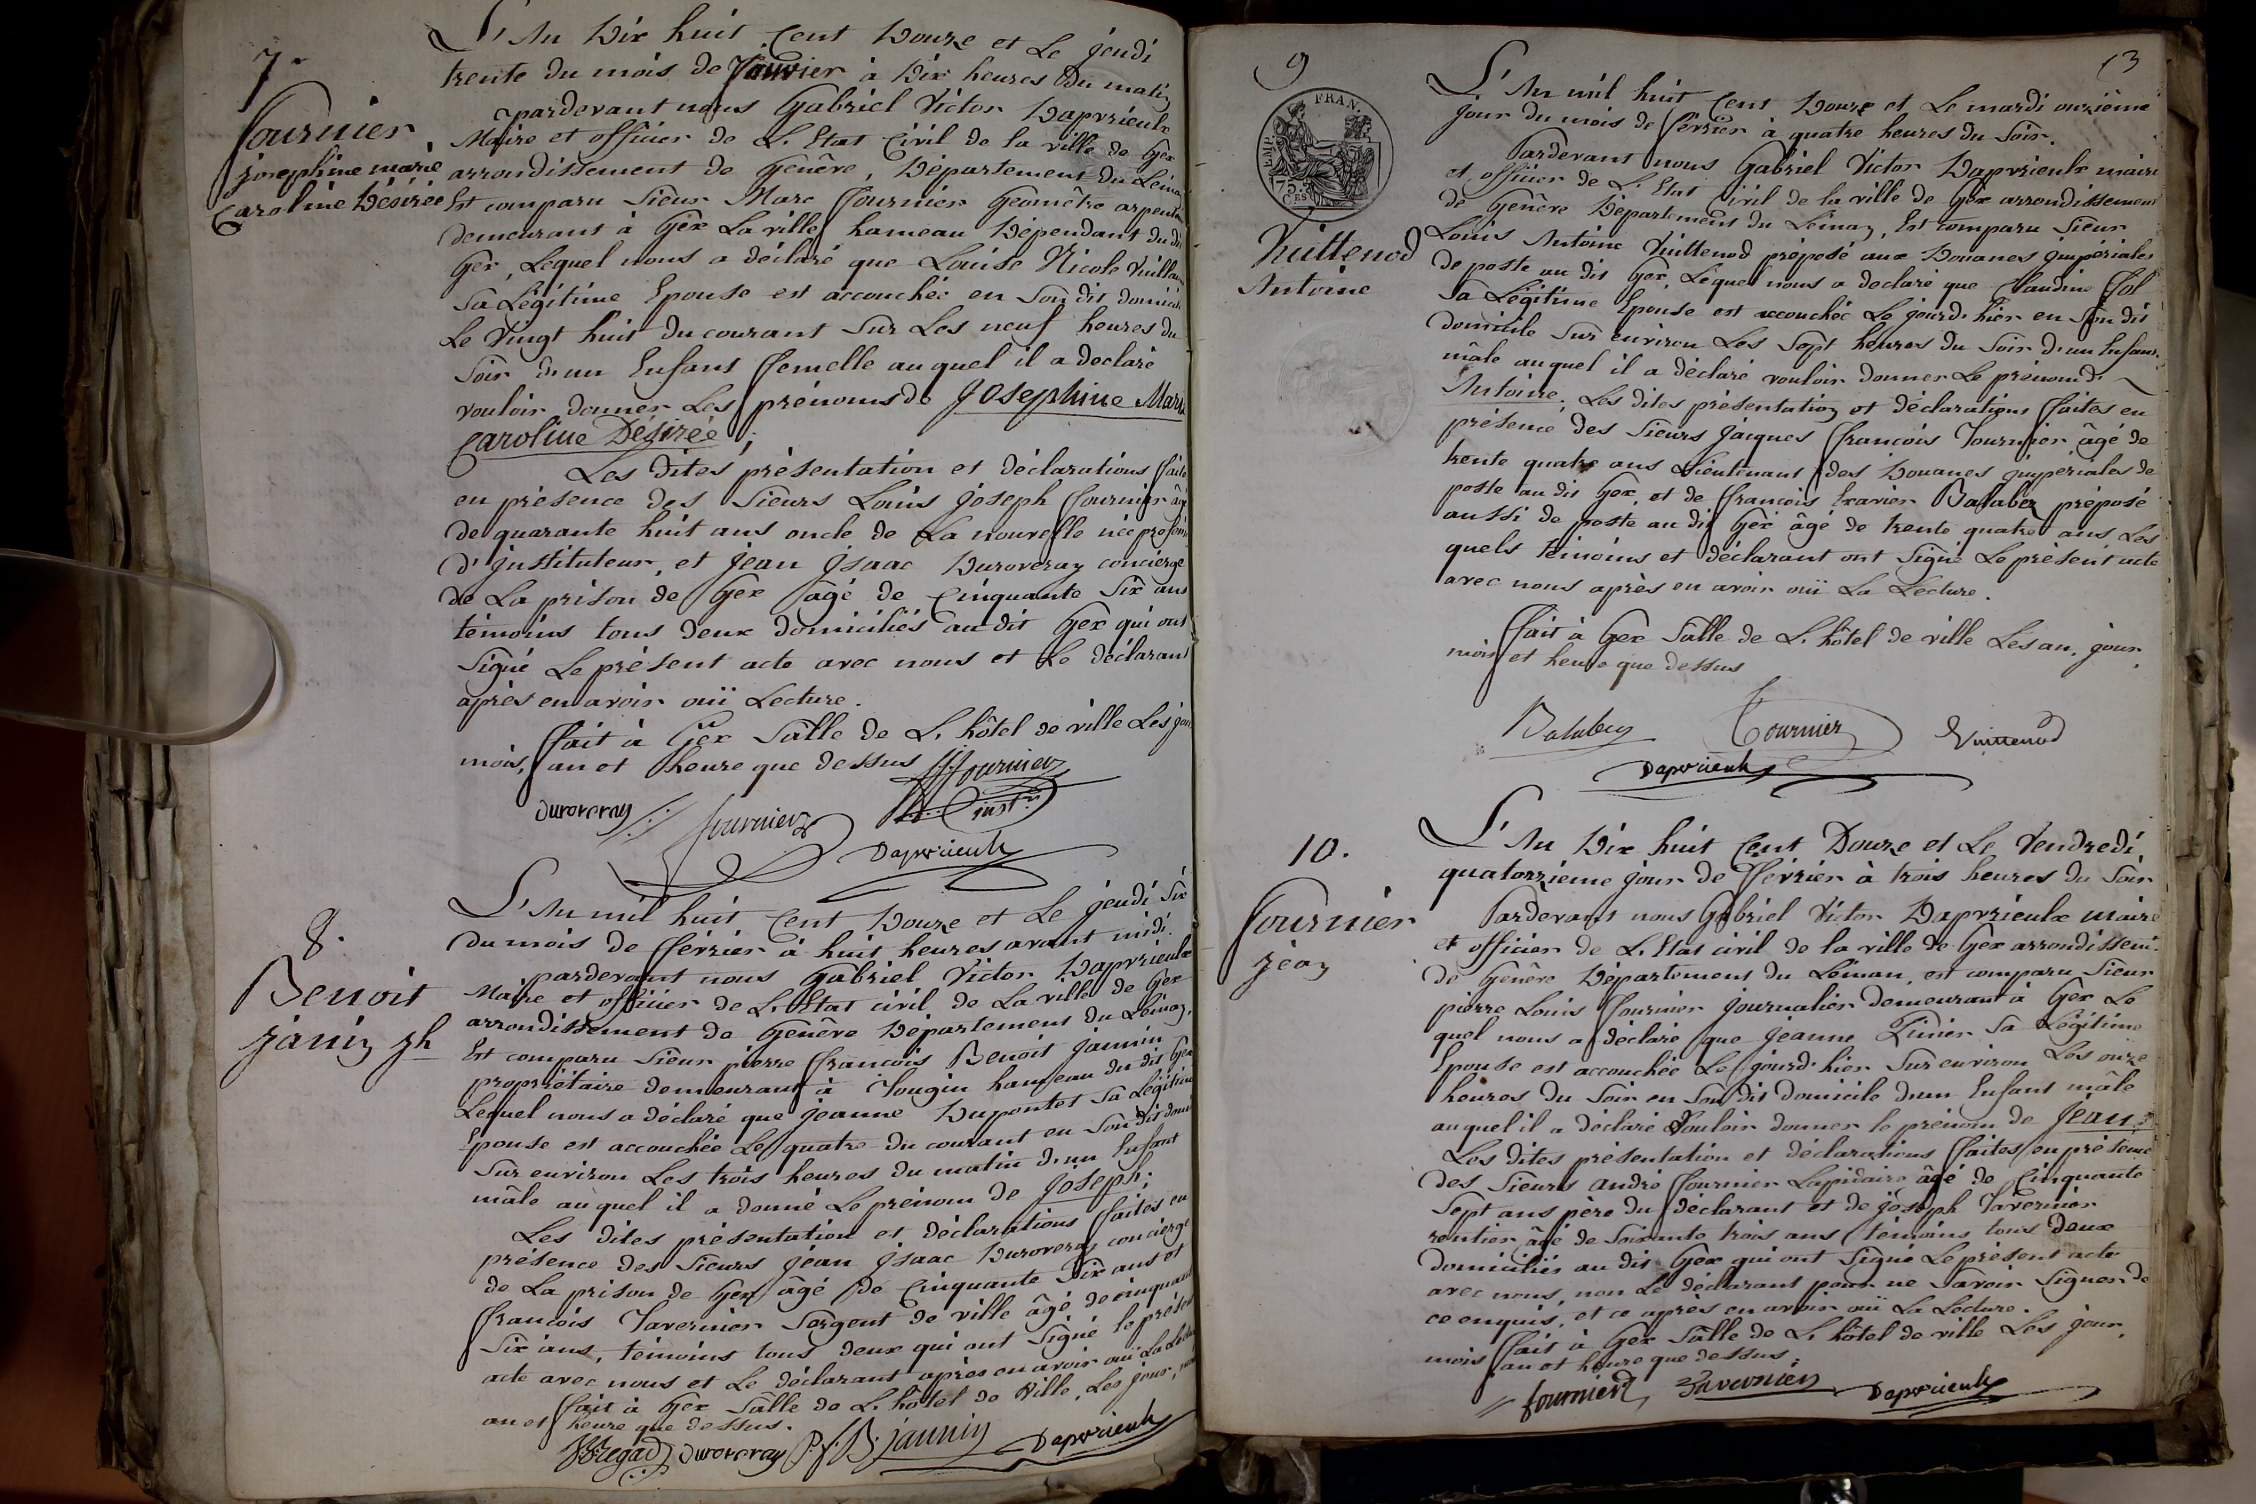 7.
Fournier
josephine marie
Caroline Désirée
L'An Dix huit Cent Douze et Le jeudi
trente du mois de Janvier à Dix heures du matin
pardevant nous Gabriel Victor Dapvrieulx
Maire et officier de L'Etat Civil de la ville de Gex
arrondissement de Genêve, Département du Léman
Est comparu Sieur Marc Fournier Géomêtre arpenteur
demeurant à Gex La ville hameau Dépendant du dit
Gex, Lequel nous a déclaré que Louise Nicole
Sa Légitime Epouse est accouchée en Son dit domicile
Le Vingt huit du courant Sur Les neuf heures du
Soir d'un Enfant femelle auquel il a declaré
vouloir donner Les prénoms de Josephine Marie
Caroline Désirée;
Les dites présentation et déclarations faites
en présence des Sieurs Louis Joseph Fournier âgé
de quarante huit ans oncle de La nouvelle née profession
d'instituteur, et Jean Isaac Duroveray concierge
de La prison de Gex âgé de Cinquante Six ans
témoins tous deux domiciliés au dit Gex qui ont
Signé Le présent acte avec nous et Le déclarant
après en avoir ouï Lecture.
fait à Gex Salle de L'hôtel de ville Les jour
mois, an et heure que dessus
Fournier
inst.r
Duroveray
fournier
Dapvrieulx
8.
Benoit
janin jh
L'An mil huit Cent Douze et Le jeudi Six
du mois de février à huit heures avant midi.
pardevant nous Gabriel Victor Dapvrieulx
Maire et officier de L'Etat civil de La ville de Gex
arrondissement de Genêve Département du Léman,
Est comparu Sieur pierre françois Benoit Jannin
propriétaire demeurant à Tougin hameau du dit Gex
Lequel nous a déclaré que jeanne Dupontet Sa Légitime
Epouse est accouchée Le quatre du courant en Son dit domicile
Sur environ Les trois heures du matin d'un Enfant
mâle auquel il a donné Le prénom de Joseph;
Les dites présentation et déclarations faites en
présence des Sieurs Jean Isaac Duroveray concierge
de La prison de Gex âgé de Cinquante Six ans et
françois Tavernier Sergent de ville âgé de cinquante
Six ans, témoins tous deux qui ont Signé le présent
acte avec nous et Le déclarant après en avoir ouï La Lecture
fait à Gex Salle de L'hôtel de Ville, Les jour, mois
an et heure que dessus.
Duroveray P. f. B. jannin Dapvrieulx
9
13
FRAN.
EMP.
75.
CES
Vuittenod
Antoine
L'An mil huit Cent Douze et Le mardi onzième
jour du mois de février à quatre heures du Soir.
Pardevant nous Gabriel Victor Dapvrieulx maire
et officier de L'Etat Civil de la ville de Gex arrondissement
de Genêve Département du Léman, Est comparu Sieur
Louis Antoine Vuittenod préposé aux Douanes impériales
de poste au dit Gex, Lequel nous a declaré que Claudine
Sa Légitime Epouse est accouchée Le jourd'hier en Son dit
domicile Sur environ Les Sept heures du Soir d'un Enfant
mâle auquel il a déclaré vouloir donner Le prénom d'
Antoine; Les dites présentation et déclarations faites en
présence des Sieurs Jacques françois Tournier âgé de
trente quatre ans Lieutenant des Douanes impériales de
poste au dit Gex, et de françois Exavier Balabey préposé
aussi de poste au dit Gex âgé de trente quatre ans Les
quels témoins et déclarant ont Signé Le présent acte
avec nous après en avoir ouï La Lecture.
fait à Gex Salle de L'hôtel de ville Les an, jour,
mois et heure que dessus
Balabey Tournier Vuittenod
Dapvrieulx
10.
Fournier
jean
L'An Dix huit Cent Douze et Le Vendredi
quatorzième jour de février à trois heures du Soir
Pardevant nous Gabriel Victor Dapvrieulx maire
et officier de L'Etat civil de la ville de Gex arrondissem.
de Genêve Département du Léman, est comparu Sieur
pierre Louis Fournier journalier demeurant à Gex Le
quel nous a déclaré que Jeanne Sa Légitime
Epouse est accouchée Le jourd'hier Sur environ Les onze
heures du Soir en Son dit domicile d'un Enfant mâle
auquel il a déclaré Vouloir donner le prénom de Jean;
Les dites présentation et déclarations faites en présence
des Sieurs andré Fournier Lapidaire âgé de Cinquante
Sept ans père du déclarant et de joseph Tavernier
rentier âgé de Soixante trois ans témoins tous deux
domiciliés au dit Gex qui ont Signé Le présent acte
avec nous, non Le déclarant pour ne Savoir Signer de
ce enquis, et ce après en avoir ouï La Lecture.
fait à Gex Salle de L'hôtel de ville Les jour,
mois an et heure que dessus;
fournier Tavernier Dapvrieulx